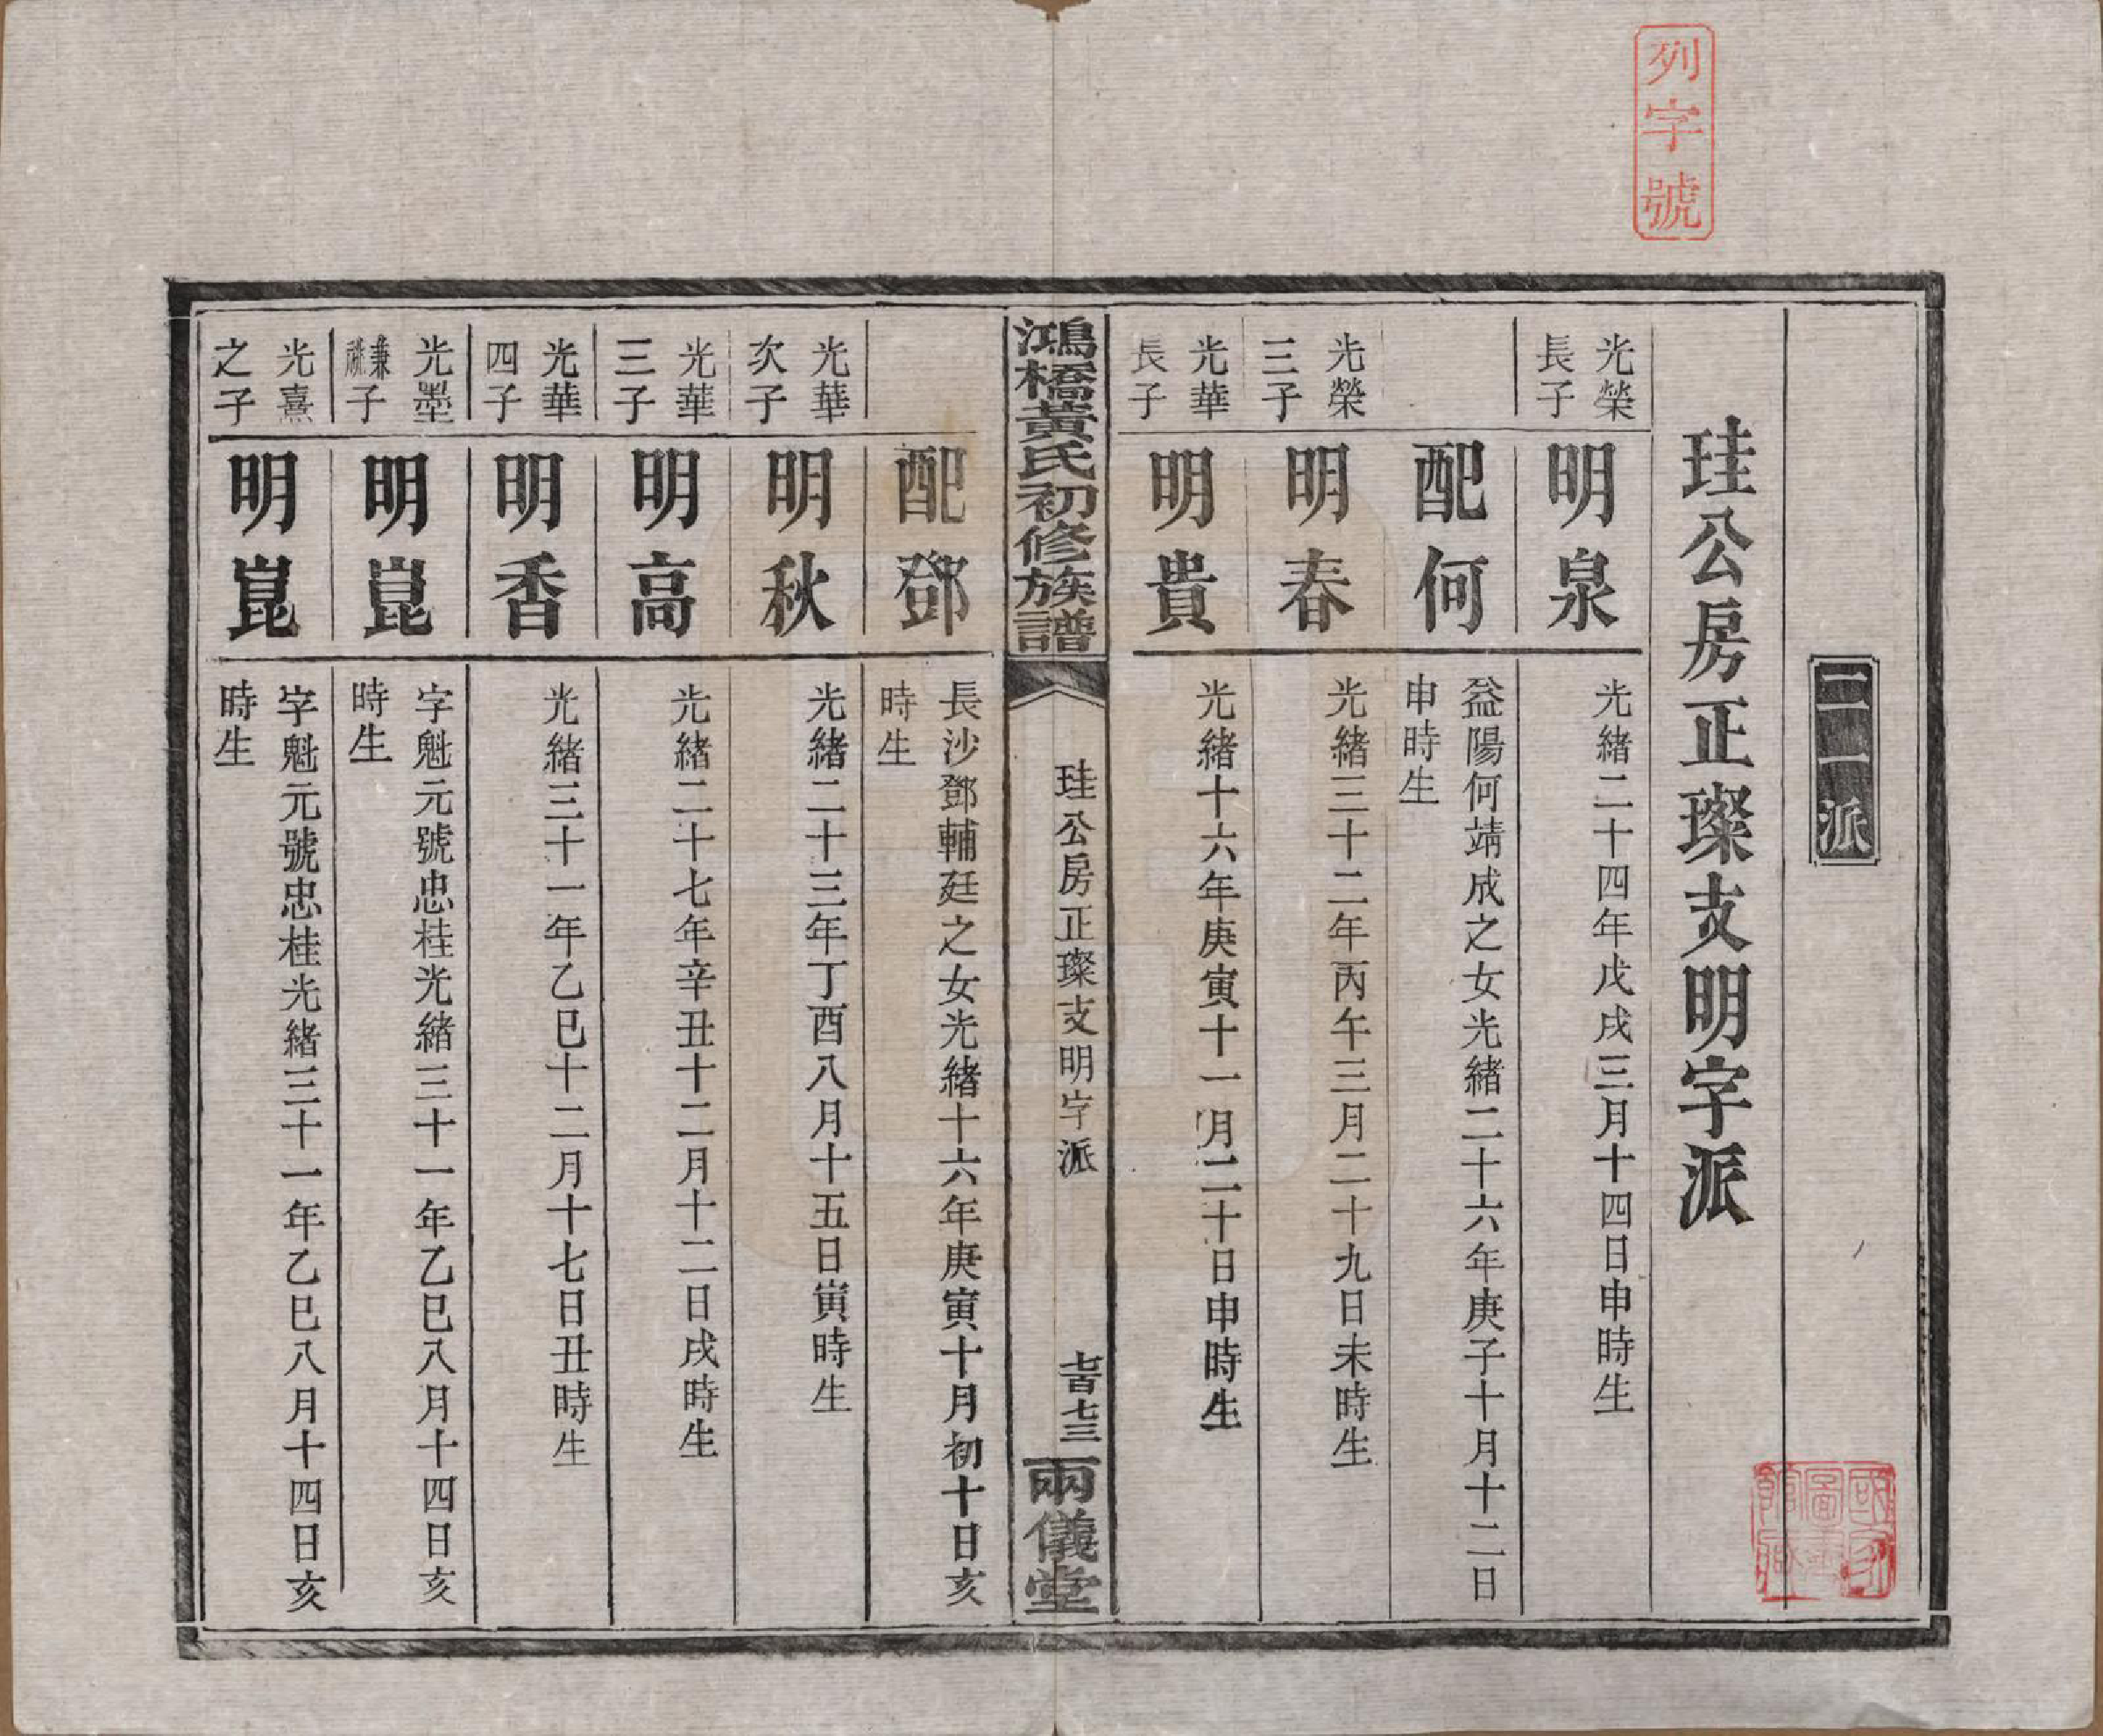 列字號
二一派
珪公房正璨支明字派
光榮
長子
明泉
光緒二十四年戊戌三月十四日申時生
配何
益陽何靖成之女光緒二十六年庚子十月十二日
申時生
光榮
三子
明春
光緒三十二年丙午三月二十九日未時生
光華
長子
明貴
光緒十六年庚寅十一月二十日申時生
鴻橋黃氏初修族譜
珪公房正璨支明字派
七百七三
兩儀堂
配鄧
長沙鄧輔廷之女光緒十六年庚寅十月初十日亥
時生
光華
次子
明秋
光緒二十三年丁酉八月十五日寅時生
光華
三子
明高
光緒二十七年辛丑十二月十二日戌時生
光華
四子
明香
光緒三十一年乙巳十二月十七日丑時生
光墨
兼祧子
明崑
字魁元號忠桂光緒三十一年乙巳八月十四日亥
時生
光熹
之子
明崑
字魁元號忠桂光緒三十一年乙巳八月十四日亥
時生